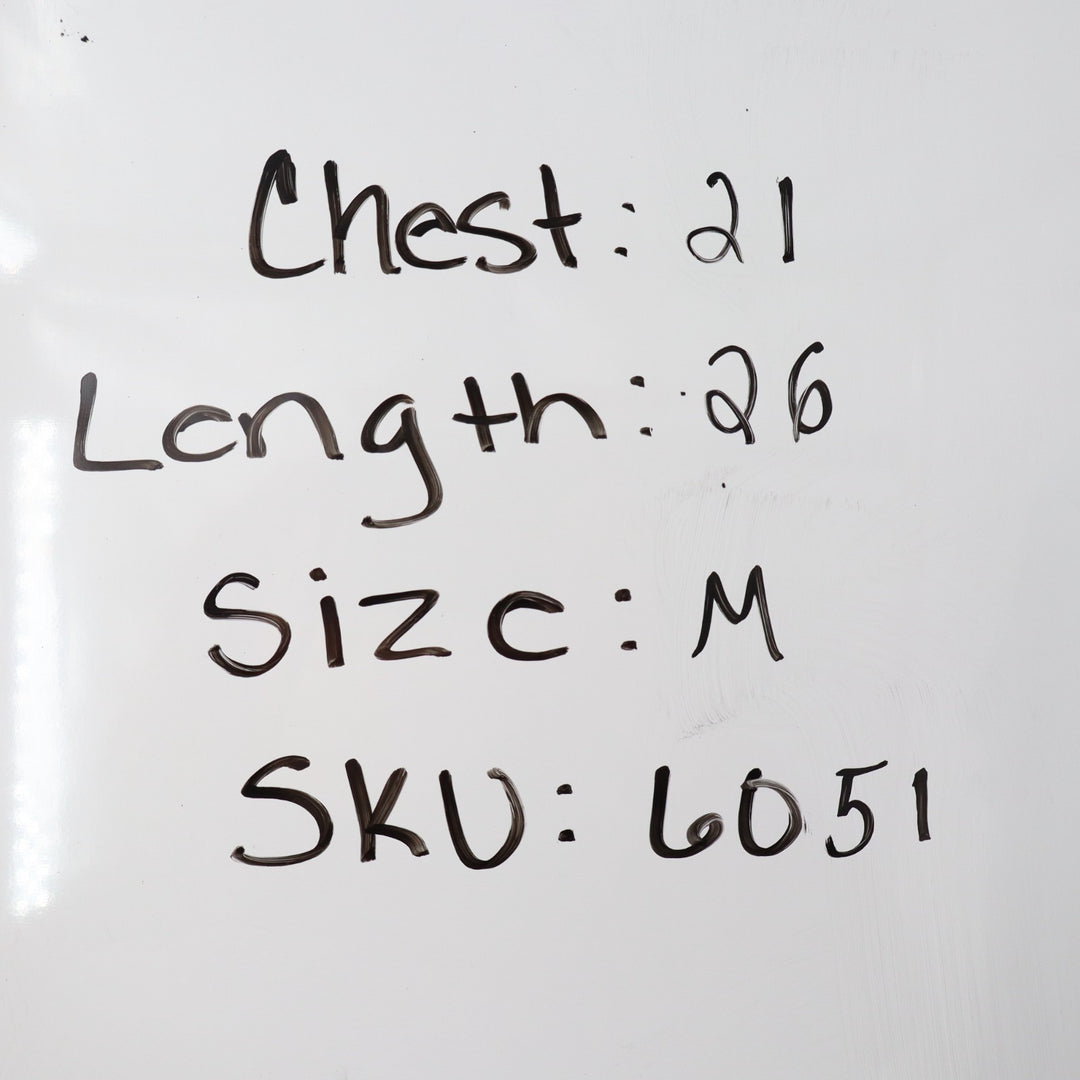 Chest: 21
Length: 26
Size: M
SKU: 6051